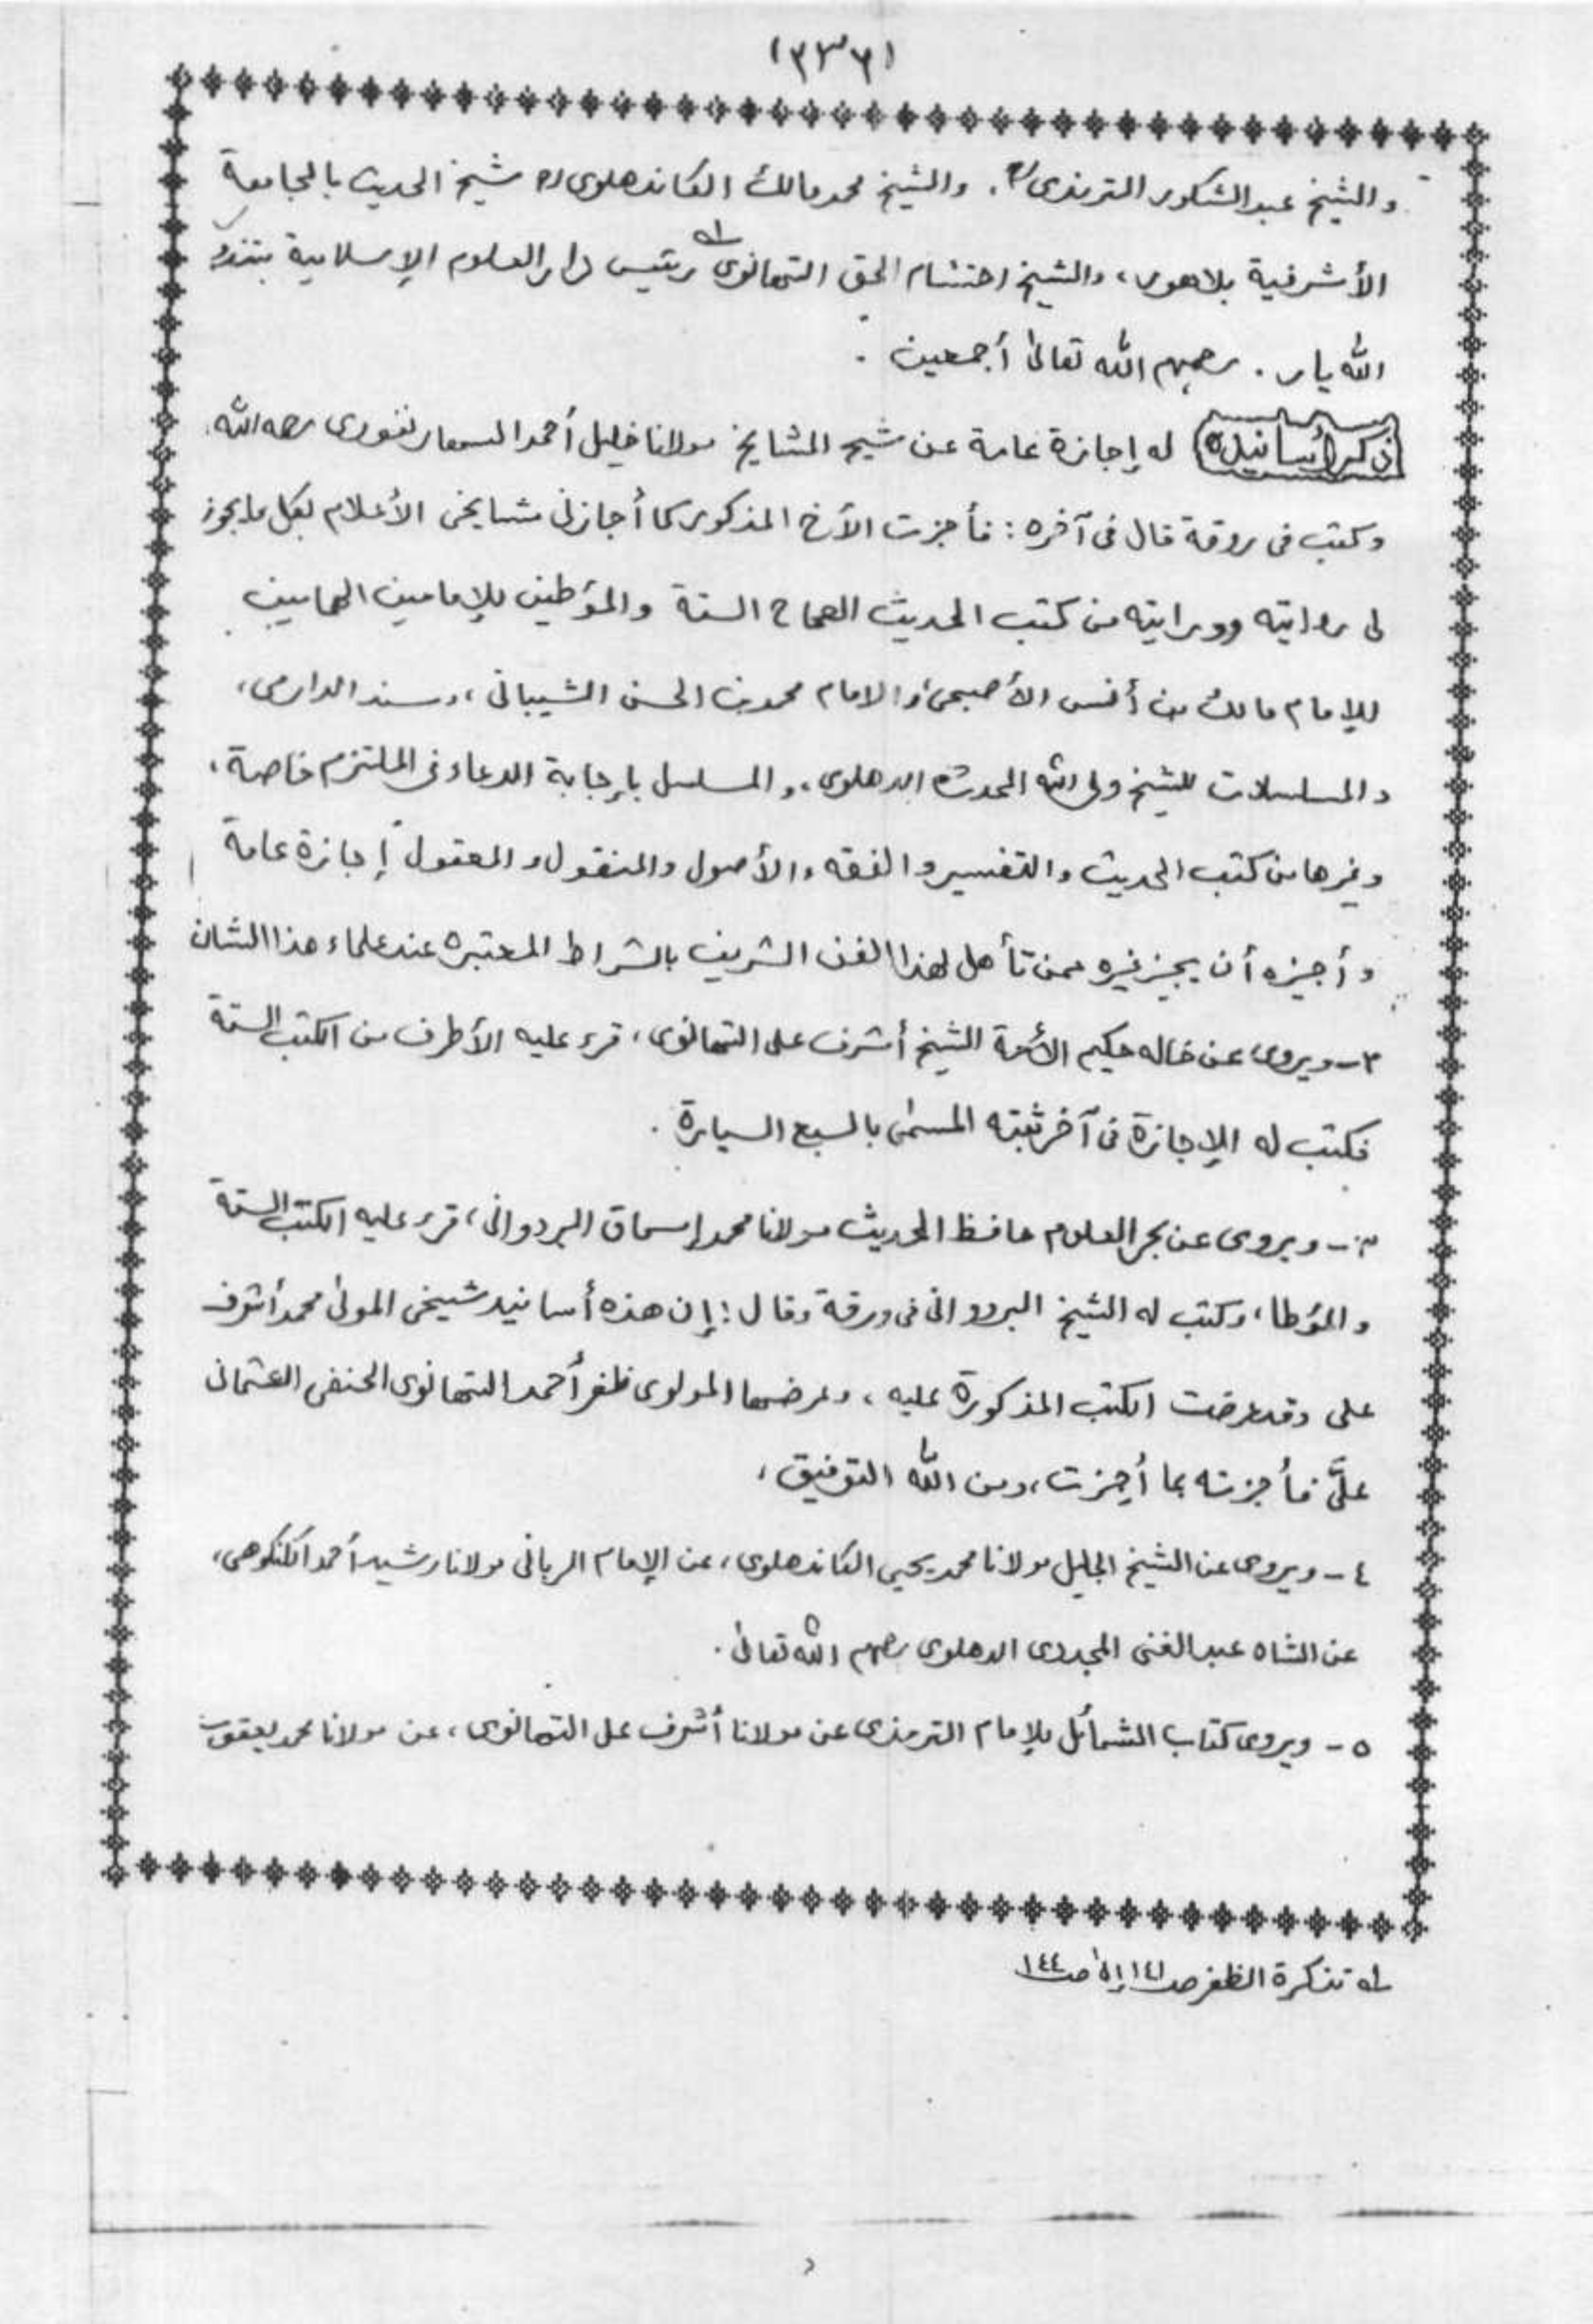 (٣٣٦)
والشيخ عبد الشكور الترمذى، والشيخ محمد مالك الكاندهلوى شيخ الحديث بالجامعة
الأشرفية بلاهور، والشيخ احتشام الحق التهانوى رئيس دار العلوم الإسلامية بتندو
الله يار. رحمهم الله تعالى أجمعين.
ذكر أسانيده له إجازة عامة عن شيخ المشايخ مولانا خليل أحمد السهارنفورى رحمه الله.
وكتب فى ورقة قال فى آخره: فأجزت الأخ المذكور كما أجازنى مشايخى الأعلام بكل ما يجوز
لى روايته ودرايته من كتب الحديث الصحاح الستة والمؤطين للإمامين الهمامين
للإمام مالك بن أنس الأصبحى والامام محمد بن الحسن الشيبانى، ومسند الدارمى،
والمسلسلات للشيخ ولى الله المحدث الدهلوى، والمسلسل بإجابة الدعاء فى الملتزم خاصة،
وغيرها من كتب الحديث والتفسير والفقه والأصول والمنقول والمعقول إجازة عامة
وأجيزه أن يجيز غيره ممن تأهل لهذا الفن الشريف بالشراط المعتبره عند علماء هذا الشان
٢- ويروى عن خاله حكيم الأمة الشيخ أشرف على التهانوى، قرء عليه الأطرف من الكتب الستة
فكتب له الإجازة فى آخر ثبته المسمى بالسبع السيارة.
٣- ويروى عن بحر العلوم حافظ الحديث مولانا محمد إسحاق البردوانى، قرء عليه الكتب الستة
والمؤطا، وكتب له الشيخ البردوانى فى ورقة وقال: إن هذه أسانيد شيخى المولى محمد أشرف
على وقد عرضت الكتب المذكورة عليه، وعرضها المولوى ظفر أحمد التهانوى الحنفى العثمانى
علىَّ فأجزته بما أجزت، ومن الله التوفيق،
٤- ويروى عن الشيخ الجليل مولانا محمد يحيى الكاندهلوى، عن الإمام الربانى مولانا رشيد أحمد الكنكوهى،
عن الشاه عبد الغنى المجددى الدهلوى رحمهم الله تعالى.
٥- ويروى كتاب الشمائل للإمام الترمذى عن مولانا أشرف على التهانوى، عن مولانا محمد يعقوب
له تذكرة الظفر صـ١٤١ إلى صـ١٤٤